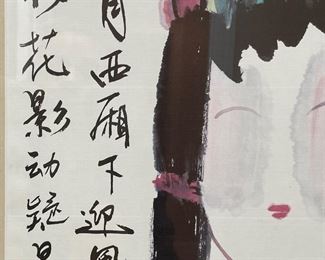 月西厢下迎
花影动疑